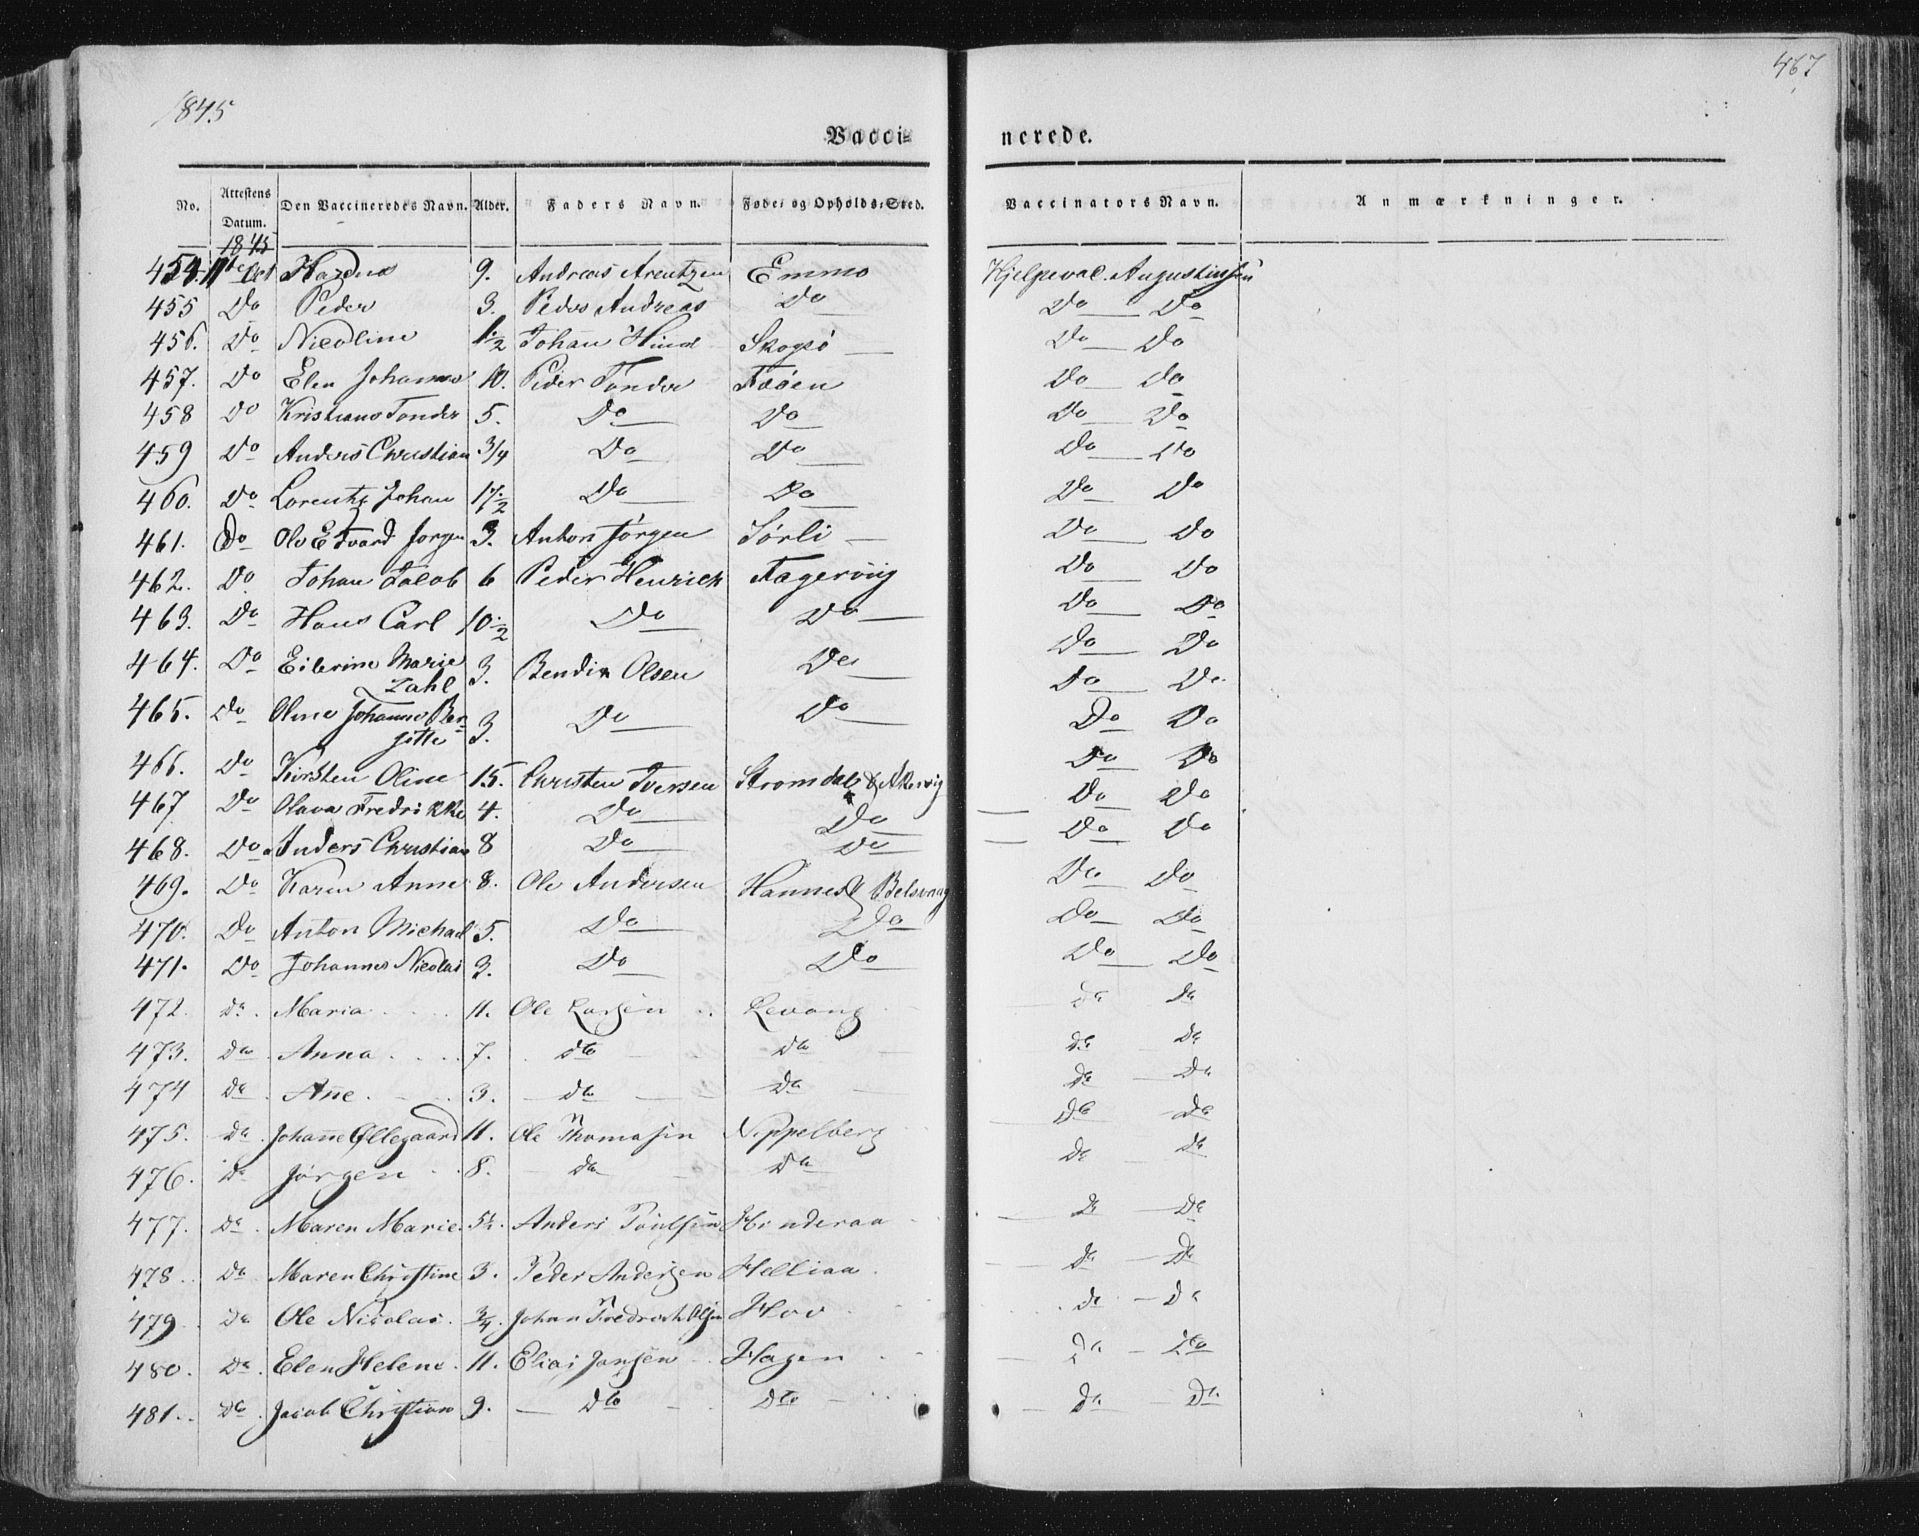 1845
467
Vacci=
nerede.
No. Attestens Datum. Den Vaccineredes Navn. Alder. Faders Navn. Føde= og Opholds=Sted. Vaccinators Navn. Anmærkninger.
1845
454. 11te Oct 9. Andreas Arentzen Hjelpevac. Augustinsen
455 Do Peder 3. Peder Andreas Do Do Do
456. Do Nicoline 1/2 Johan Skogsö Do Do
457. Do Elen Johanna 10. Peder Tønder Do Do
458 Do Tønder 5. Do Do Do Do
459 Do Anders Christian 3/4 Do Do Do Do
460. Do Lorentz Johan 1/2 Do Do Do Do
461. Do Ole Edvard Jørgen 3. Anton Jørgen Sørli Do Do
462. Do Johan Jacob 6 Peder Henrich Fagervig Do Do
463. Do Hans Carl 10 1/2 Do Do Do Do
464. Do Eilerine Marie Zahl 3. Bendix Olsen Do Do Do
465. Do Oline Johanna Ber=
gitte 3. Do Do Do Do
466. Do Kirsten Oline 15. Christen Iversen Strømdal & Do Do
467 Do Olava Fredrikke 4. Do Do Do Do
468. Do Anders Christian 8 Do Do Do Do
469. Do Karen Anne 8. Ole Andersen Hannes & Do Do
470. Do Anton Michael 5. Do Do Do Do
471. Do Johannes Nicolai 3. Do Do Do Do
472. Do Maria 11. Ole Larsen Levang Do Do
473. Do Anna 7. Do Do Do Do
474 Do Ane 3. Do Do Do Do
475. Do Johanne Øllegaard 11. Ole Thomasen Nippelberg Do Do
476. Do Jørgen 8. Do Do Do Do
477. Do Maren Marie 5 1/2. Anders Poulsen Hinderaa Do Do
478. Do Maren Christine 3. Peder Andersen Helliaa Do Do
479. Do Ole Nicolai 3/4. Johan Fredrich Olsen Hov Do Do
480. Do Elen Helene 11. Elias Jansen Hagen Do Do
481. Do Jacob Christian 9. Do Do Do Do